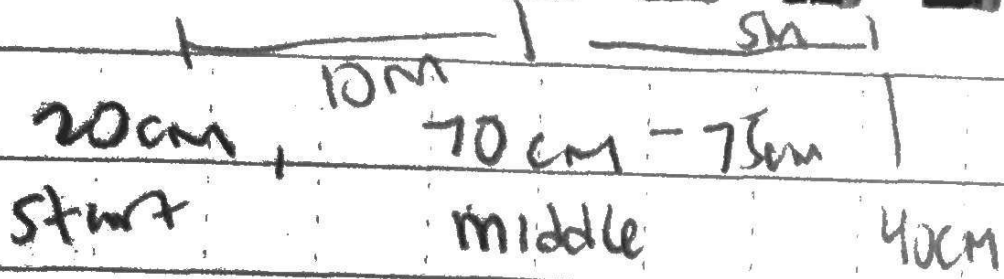 5M
10M
20cm, 70cm - 75cm
start middle 40cm